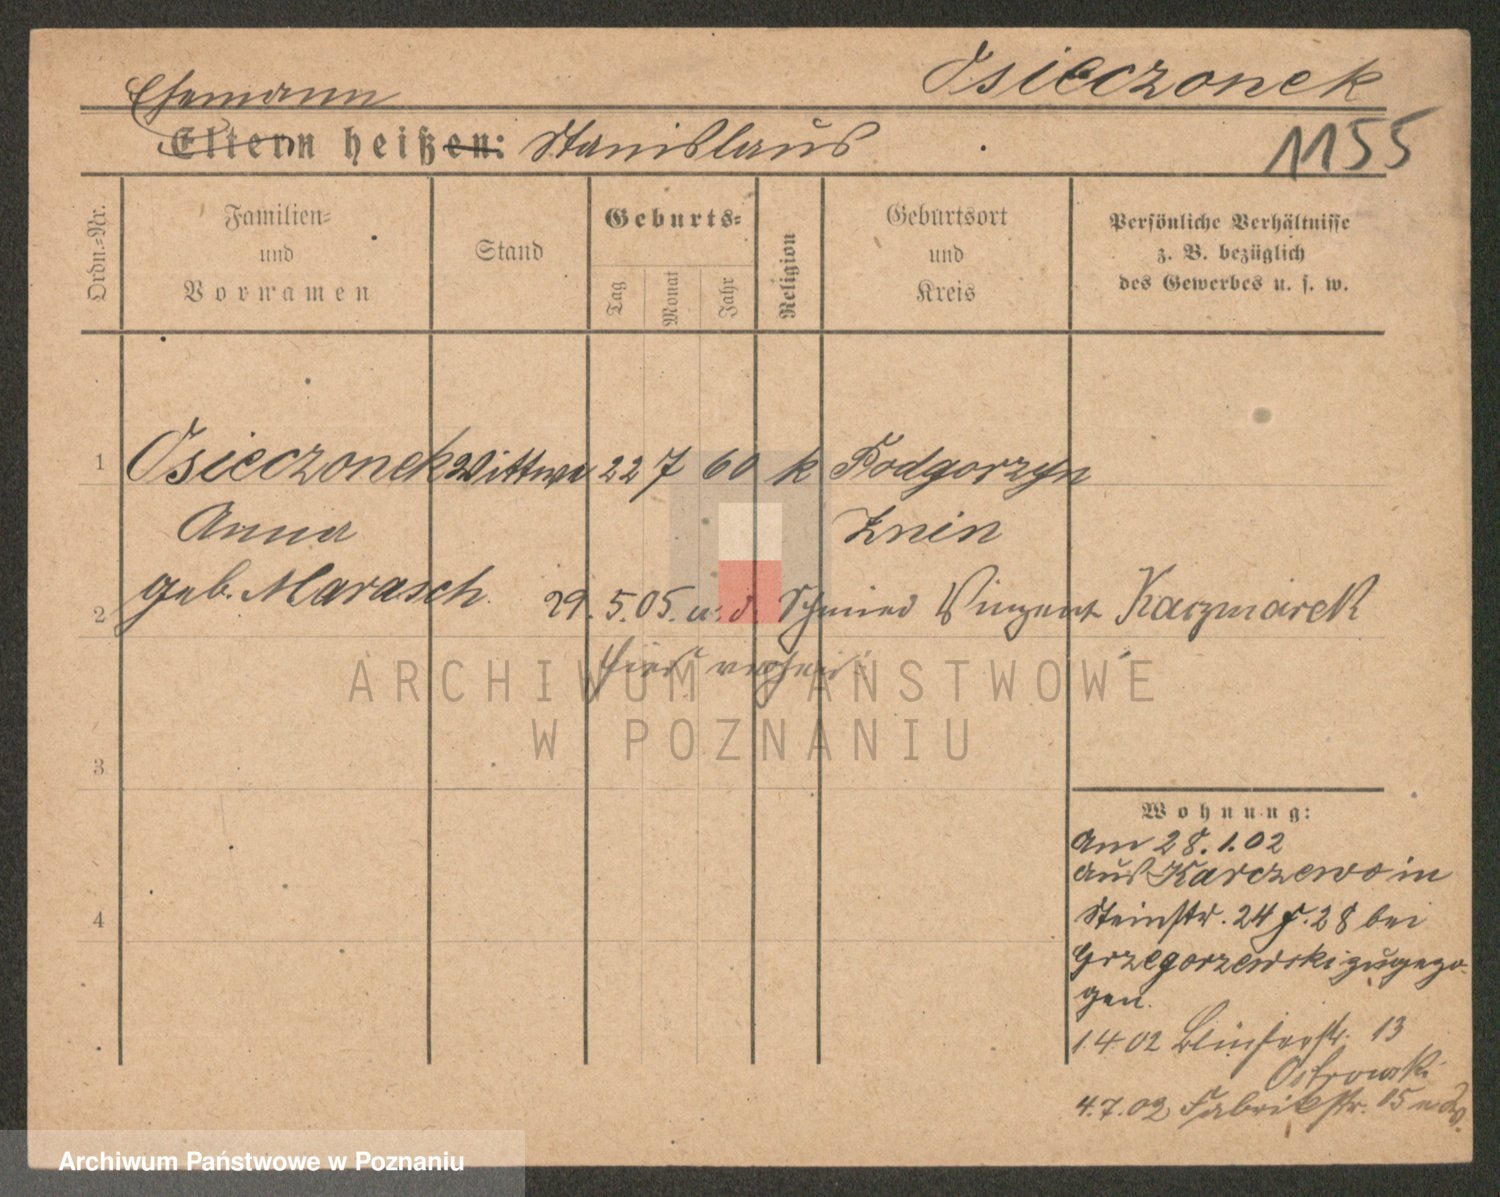 Osieczonek
Ehemann
Eltern heißen: Stanislaus
1155
Ordn.-Nr.
Familien-
und
Vornamen
Stand
Geburts-
Tag
Monat
Jahr
Religion
Geburtsort
und
Kreis
Persönliche Verhältnisse
z. B. bezüglich
des Gewerbes u. s. w.
1 Osieczonek Wittwe 22 7 60 k Podgorzyn
Anna Znin
geb. Marasch.
2 29. 5. 05. u. d. Schmied Vinzent Kaczmarek
hier
ARCHIWUM PAŃSTWOWE
W POZNANIU
3
4
Wohnung:
Am 28.1.02
aus Karczewo in
Steinstr. 24 F. 28 bei
Grzegorzewski zugezo-
gen.
1 4 02 13
Ostrowski
4.7.02 Fabrikstr. 15
Archiwum Państwowe w Poznaniu